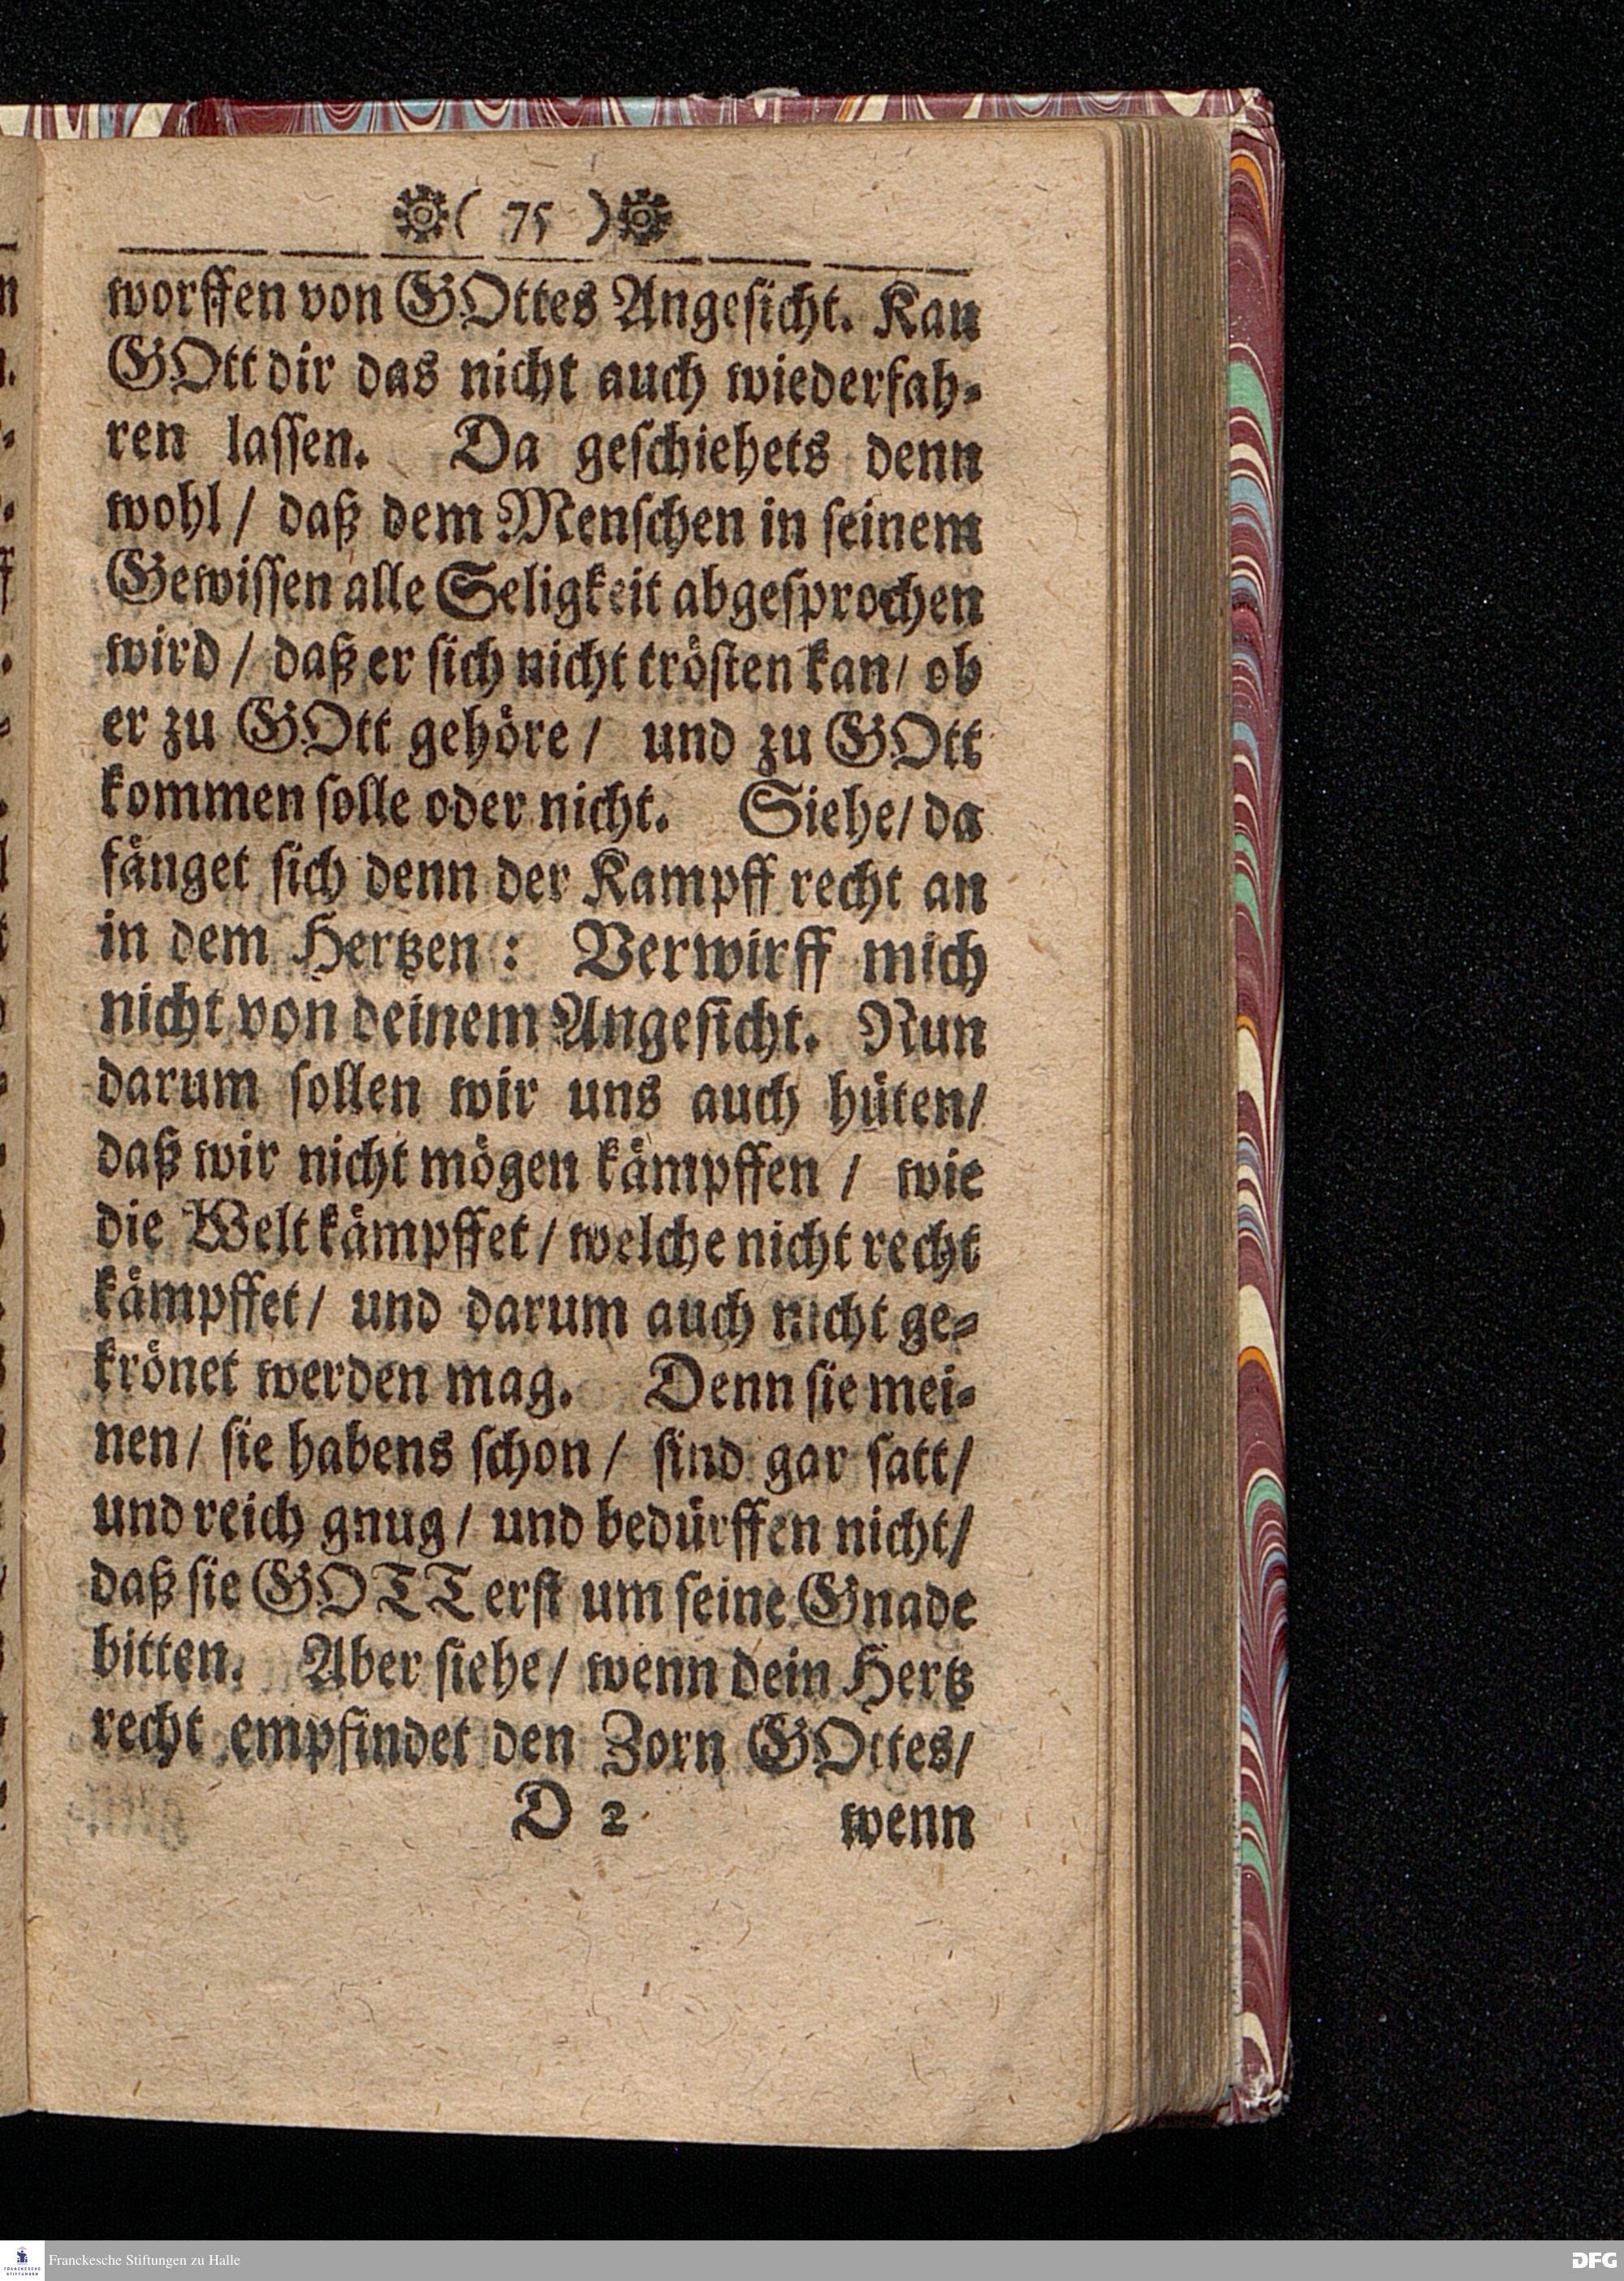 ( 75 )
worffen von GOttes Angeſicht. Kan
GOtt dir das nicht auch wiederfah⸗
ren laſſen. Da geſchiehets denn
wohl / daß dem Menſchen in ſeinem
Gewiſſen alle Seligkeit abgeſprochen
wird / daß er ſich nicht tröſten kan / ob
er zu GOtt gehöre / und zu GOtt
kommen ſolle oder nicht. Siehe / da
fänget ſich denn der Kampff recht an
in dem Hertzen : Verwirff mich
nicht von deinem Angeſicht. Nun
darum ſollen wir uns auch hüten /
daß wir nicht mögen kämpffen / wie
die Welt kämpffet / welche nicht recht
kämpffet / und darum auch nicht ge⸗
krönet werden mag. Denn ſie mei⸗
nen / ſie habens ſchon / ſind gar ſatt /
und reich gnug / und bedürffen nicht /
daß ſie GOTT erſt um ſeine Gnade
bitten. Aber ſiehe / wenn dein Hertz
recht empfindet den Zorn GOttes /
D 2 wenn
Franckesche Stiftungen zu Halle
DFG